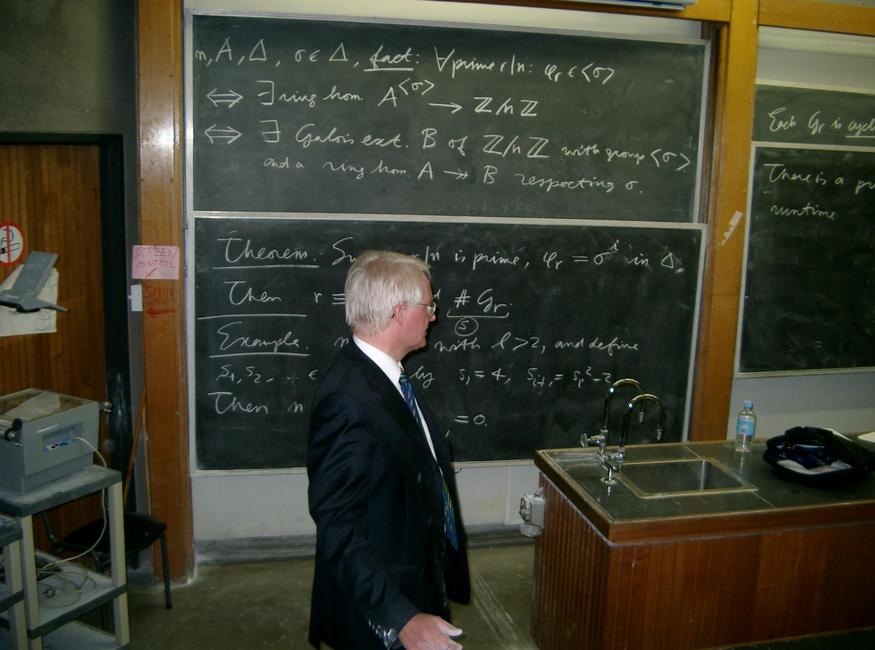 n, A, Δ, σ ∈ Δ, fact: ∀ prime r|n: φr ∈ <σ>
⟺ ∃ ring hom. A^<σ> → ℤ/nℤ
⟺ ∃ Galois ext. B of ℤ/nℤ with group <σ>
and a ring hom. A → B respecting σ.
Theorem. r|n is prime, φr = σ^i in Δ
Then r ≡ # Gr.
(s)
Example. with l > 2, and define
s1, s2, ... ∈ by s1 = 4, s_{i+1} = s_i^2 - 2
Then n = 0.
Each Gr is
There is a
runtime
SCREEN